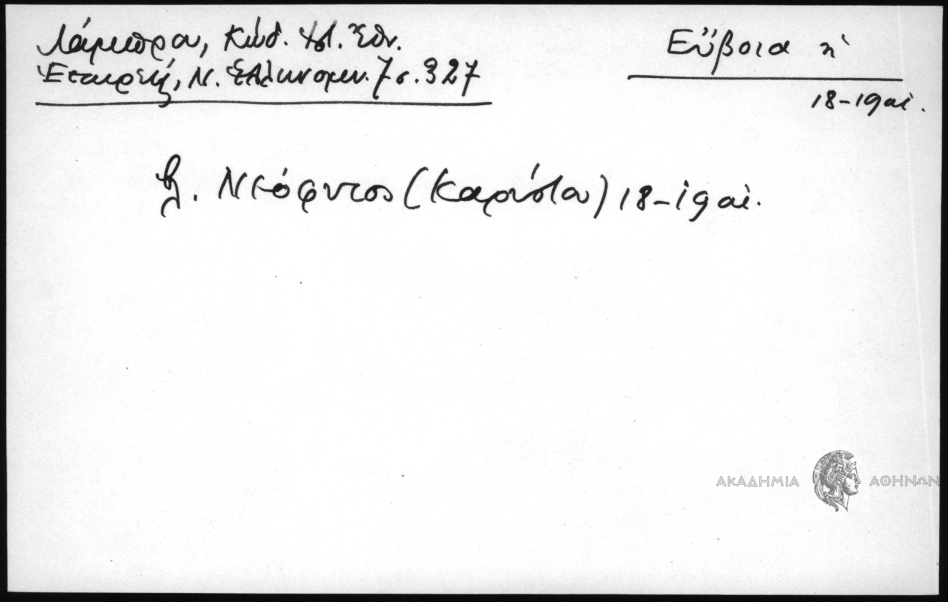 Λάμπρου, Κώδ. Ἱστ. Ἐθν.
Ἑταιρείας, Ν. Ἑλληνομν. 7 σ. 327
Εὔβοια κ'
18-19 αἰ.
βλ. Νεόφυτος (Καρύστου) 18-19 αἰ.
ΑΚΑΔΗΜΙΑ ΑΘΗΝΩΝ